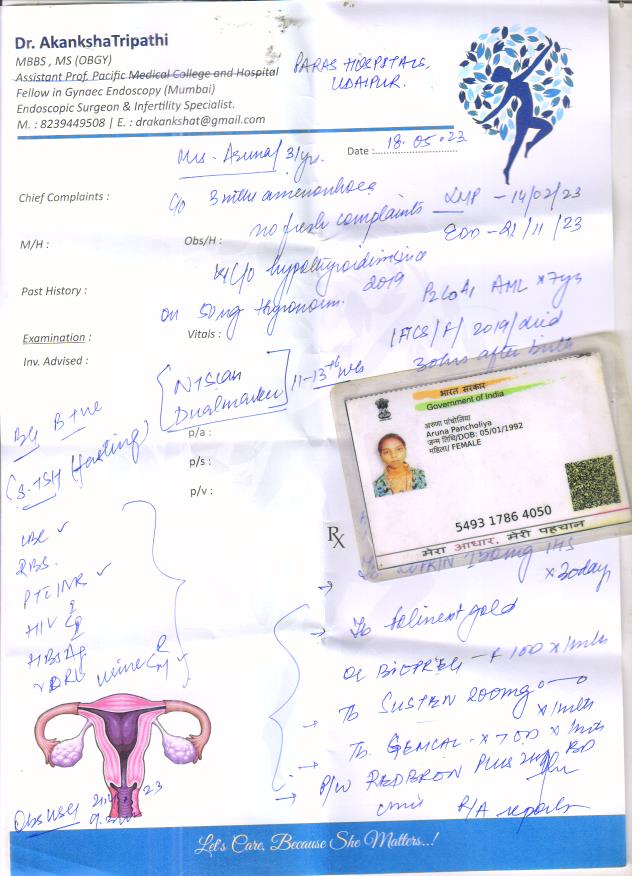 Dr. AkankshaTripathi
MBBS , MS (OBGY)
Assistant Prof. Pacific Medical College and Hospital
Fellow in Gynaec Endoscopy (Mumbai)
Endoscopic Surgeon & Infertility Specialist.
M. : 8239449508 | E. : drakankshat@gmail.com
PARAS HOSPITALS,
UDAIPUR.
Date : 18.05.23
Mrs. Aruna/31yrs.
Chief Complaints :
c/o 3 mths amenorrhoea
no fresh complaints
LMP - 14/02/23
EDD - 21/11/23
M/H :
Obs/H :
K/c/o hypothyroidism since 2019
Past History :
on 50mg thyronorm.
P2L0A1 AML x 7yrs
Examination :
Vitals :
2019/died
30hrs after birth
Inv. Advised :
NT Scan
Dual marker
11-13th wks
Bg B +ve
S. TSH (fasting)
p/a :
p/s :
p/v :
CBC ✓
RBS.
PT INR ✓
HIV
HBsAg
VDRL
urine R M ✓
भारत सरकार
Government of India
अरुणा पांचोलिया
Aruna Pancholiya
जन्म तिथि/DOB: 05/01/1992
महिला/ FEMALE
5493 1786 4050
मेरा आधार, मेरी पहचान
Rx
150mg HS
x 30days
Tb gold
Tb SUSTEN 200mg
x 1mth
Tb. GEMCAL
PLUS
R/A reports
Obs USG
Let's Care, Because She Matters..!